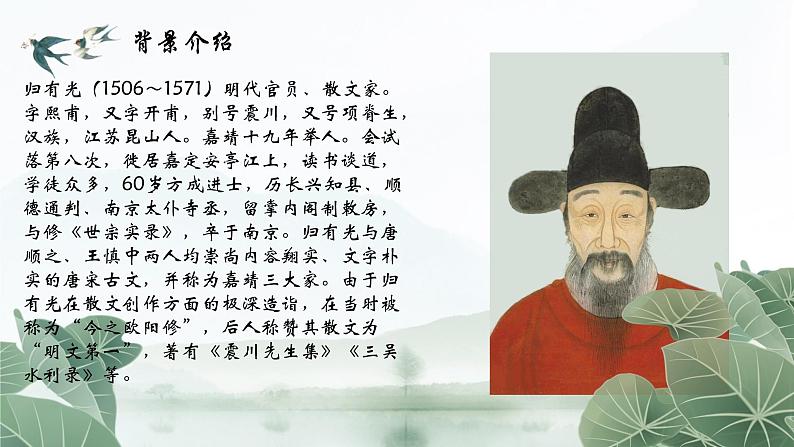 背景介绍
归有光（1506～1571）明代官员、散文家。
字熙甫，又字开甫，别号震川，又号项脊生，
汉族，江苏昆山人。嘉靖十九年举人。会试
落第八次，徙居嘉定安亭江上，读书谈道，
学徒众多，60岁方成进士，历长兴知县、顺
德通判、南京太仆寺丞，留掌内阁制敕房，
与修《世宗实录》，卒于南京。归有光与唐
顺之、王慎中两人均崇尚内容翔实、文字朴
实的唐宋古文，并称为嘉靖三大家。由于归
有光在散文创作方面的极深造诣，在当时被
称为“今之欧阳修”，后人称赞其散文为
“明文第一”，著有《震川先生集》《三吴
水利录》等。